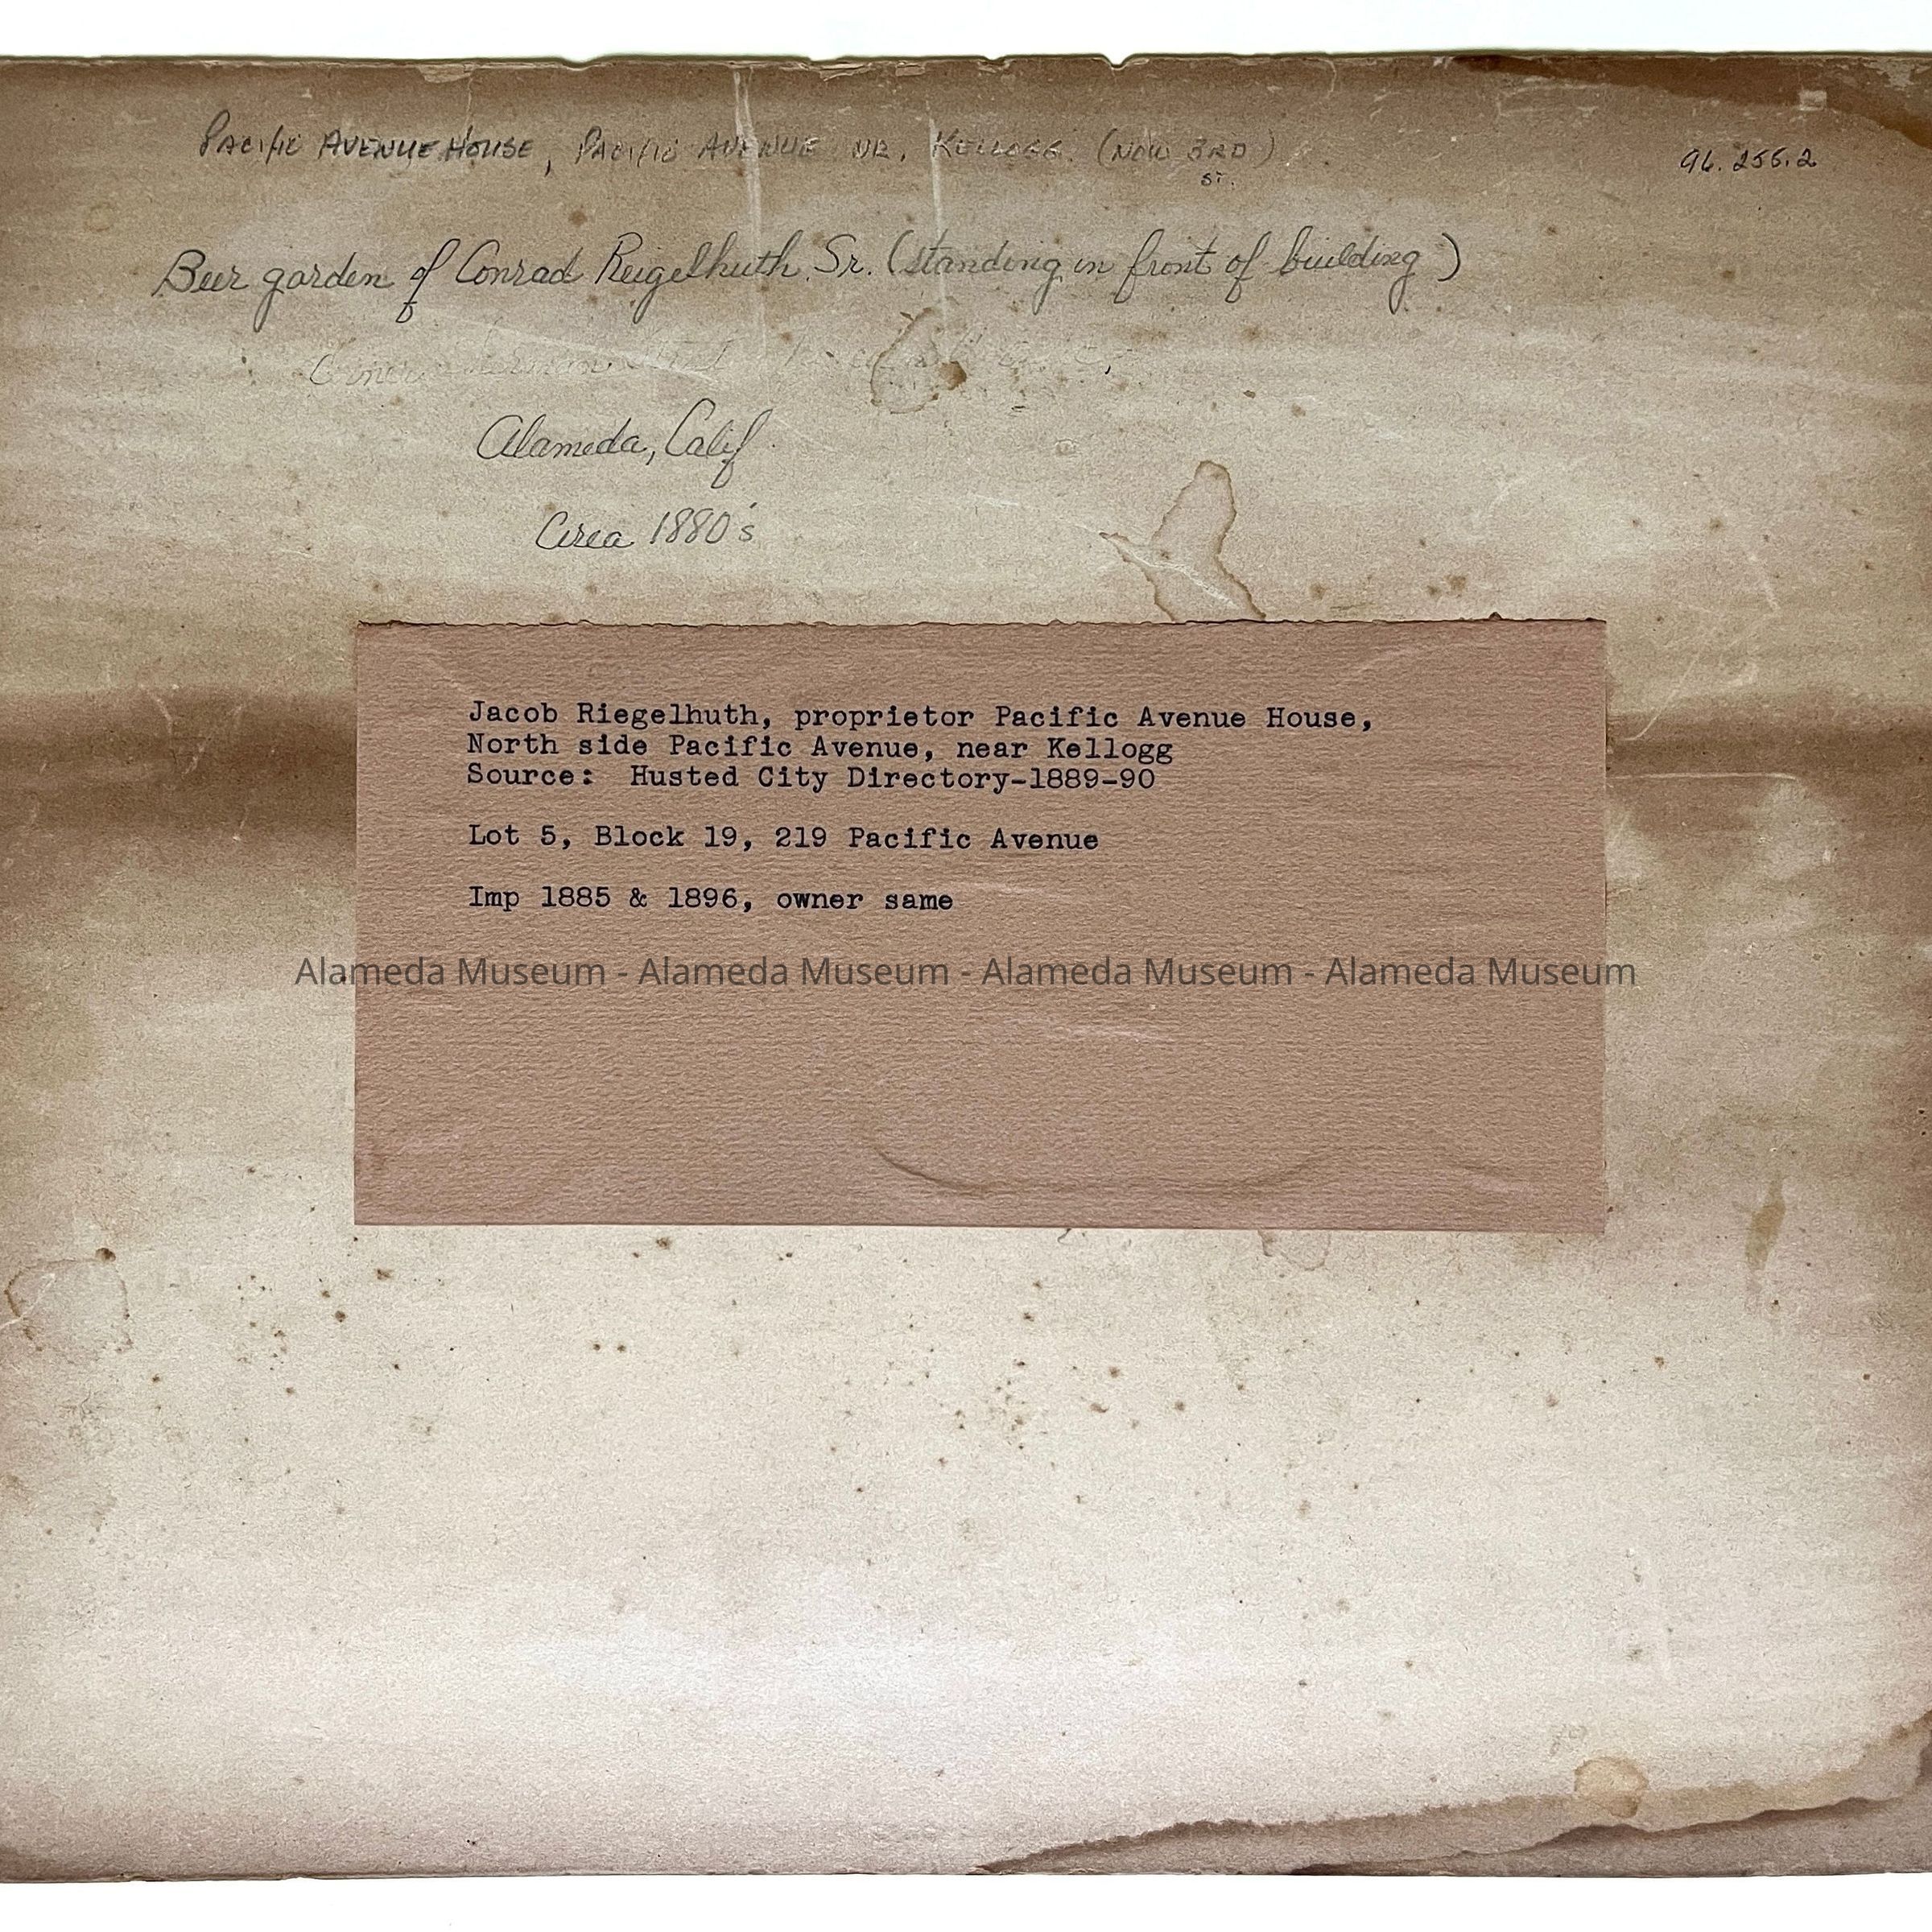 PACIFIC AVENUE HOUSE, PACIFIC AVENUE NR. KELLOGG (NOW 3RD ST.)
96.256.2
Beer garden of Conrad Reigelhuth Sr. (standing in front of building)
Alameda, Calif.
Circa 1880's
Jacob Riegelhuth, proprietor Pacific Avenue House,
North side Pacific Avenue, near Kellogg
Source: Husted City Directory-1889-90
Lot 5, Block 19, 219 Pacific Avenue
Imp 1885 & 1896, owner same
Alameda Museum - Alameda Museum - Alameda Museum - Alameda Museum